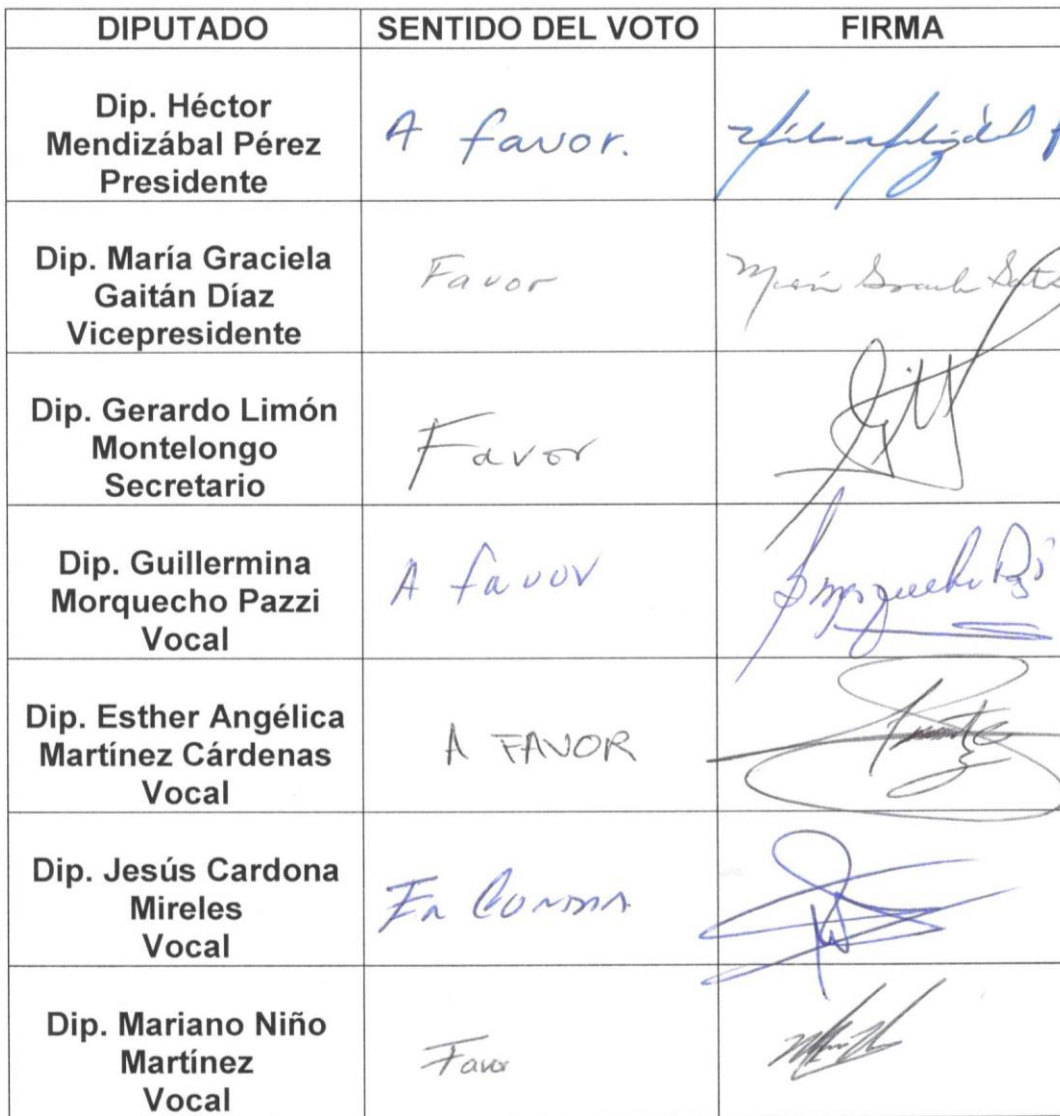 DIPUTADO SENTIDO DEL VOTO FIRMA
Dip. Héctor
Mendizábal Pérez
Presidente
A favor.
Dip. María Graciela
Gaitán Díaz
Vicepresidente
Favor
Dip. Gerardo Limón
Montelongo
Secretario
Favor
Dip. Guillermina
Morquecho Pazzi
Vocal
A favor
Dip. Esther Angélica
Martínez Cárdenas
Vocal
A FAVOR
Dip. Jesús Cardona
Mireles
Vocal
En
Dip. Mariano Niño
Martínez
Vocal
Favor